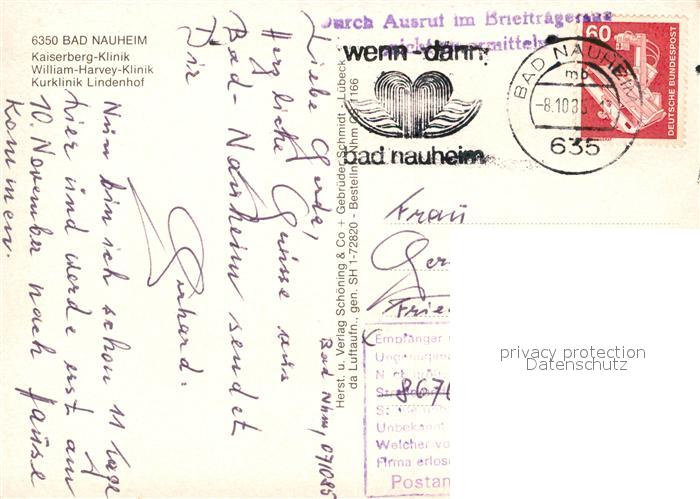 6350 BAD NAUHEIM
Kaiserberg-Klinik
William-Harvey-Klinik
Kurklinik Lindenhof
Bad Nhm, 071085
Liebe Gerda,
Herzliche Grüsse aus
Bad-Nauheim sendet
Dir
Gerhard.
Nun bin ich schon 11 Tage
hier und werde erst am
10. November nach Hause
kommen.
Herst. u. Verlag Schöning & Co + Gebrüder Schmidt - Lübeck
da Luftaufn., gen. SH 1-72820 - Bestellnr. Nhm 166
Durch Ausruf im Briefträgersaal
wenn-dann:
bad nauheim
BAD NAUHEIM
mb
-8.10.85
635
60
DEUTSCHE BUNDESPOST
Frau
Ger
Frie
Empfänger
8670
Unbekannt
Welcher
Firma erlos
Postam
privacy protection
Datenschutz